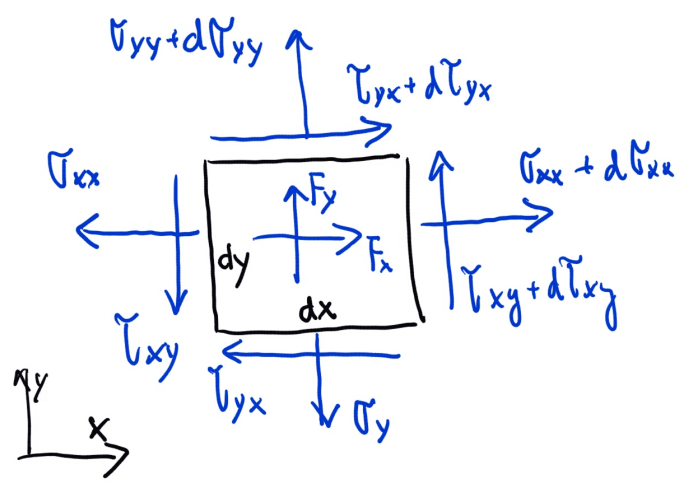 σyy+dσyy
τyx+dτyx
σxx
σxx + dσxx
Fy
Fx
dy
dx
τxy+dτxy
τxy
τyx
σy
y
x